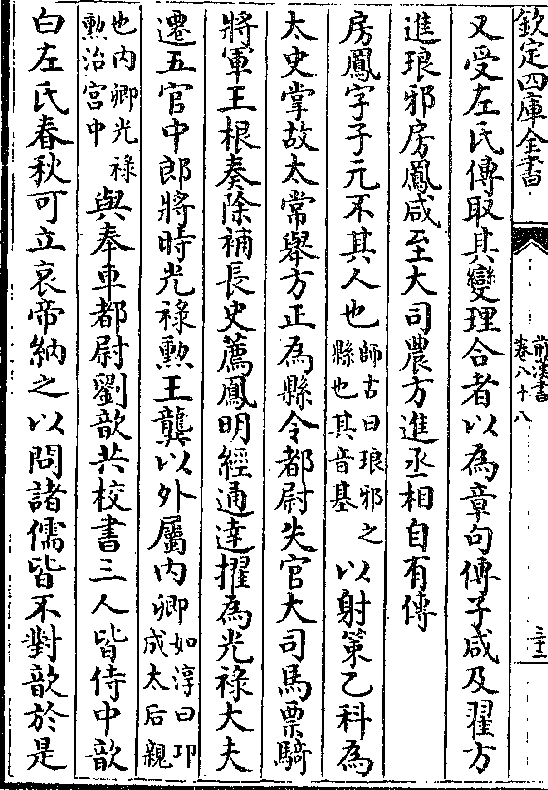 欽定四庫全書
前漢書
卷八十八
三十二
又受左氏傳取其變理合者以為章句傳子咸及翟方
進琅邪房鳳咸至大司農方進丞相自有傳
房鳳字子元不其人也師古曰琅邪之縣也其音基以射策乙科為
太史掌故太常舉方正為縣令都尉失官大司馬票騎
將軍王根奏除補長史薦鳳明經通達擢為光祿大夫
遷五官中郎將時光祿勲王龔以外屬内卿如淳曰卭成太后親
也内卿光祿勲治宫中與奉車都尉劉歆共校書三人皆侍中歆
白左氏春秋可立哀帝納之以問諸儒皆不對歆於是